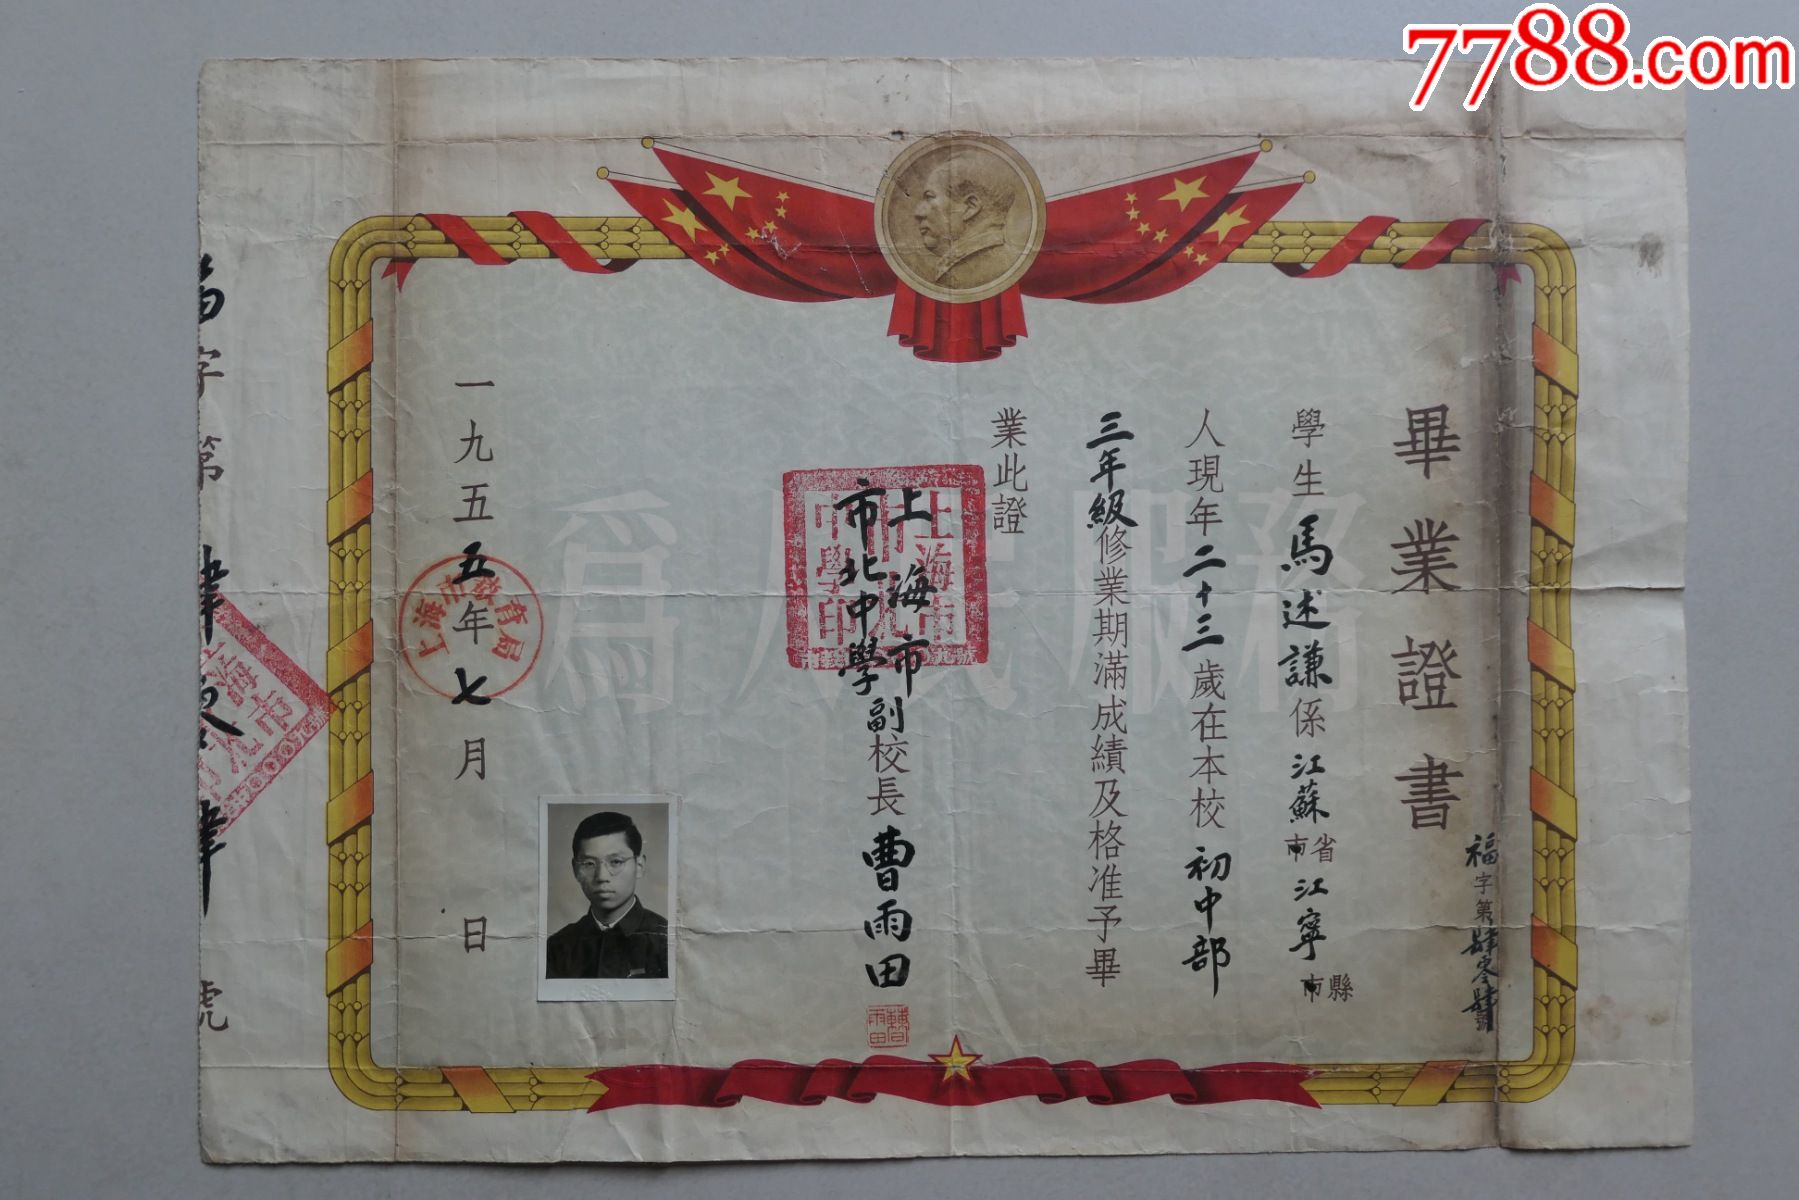 7788.com
畢業證書
福字第肆零肆號
學生馬述謙係江蘇省市江寧縣市
人現年二十三歲在本校初中部
三年級修業期滿成績及格准予畢
業此證
上海市
市北中學副校長曹雨田
一九五五年七月 日
為人民服務
上海市教育局
字第肆零肆號